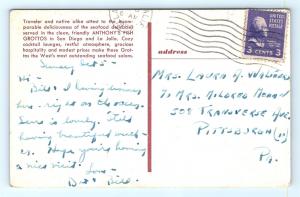 Traveler and native alike attest to the incom-
parable deliciousness of the seafood delicacies
served in the clean, friendly ANTHONY'S FISH
GROTTOS in San Diego and La Jolla. Cozy
cocktail lounges, restful atmosphere, gracious
hospitality and modest prices make these Grot-
tos the West's most outstanding seafood salons.
address
UNITED STATES POSTAGE
3 CENTS 3
Hi -
I having dinner
here - right as the ocean
Sea is lovely. Still
having beautiful week-
. Hope you're having
a nice visit.
Love -
Bill
Mrs. Laura
% Mrs. Mildred
508 Transverse Ave.
Pittsburgh (10)
Pa.